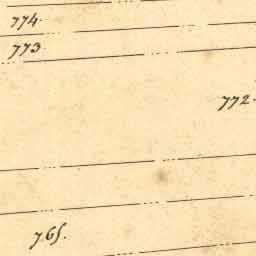 774.
773
772.
765.